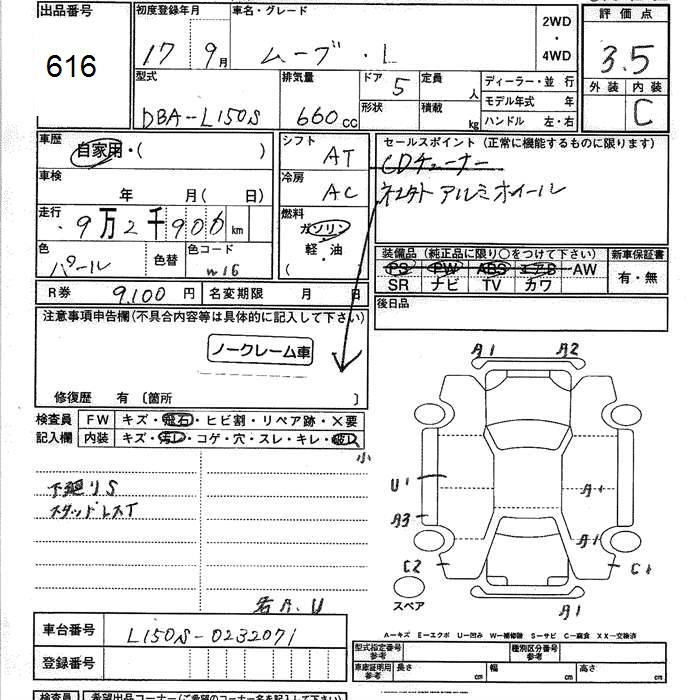 出品番号
616
初度登録年月
17年9月
車名・グレード
ムーブ・L
2WD
・
4WD
評価点
3.5
外装 内装
C
型式
DBA-L150S
排気量
660 cc
ドア 5
形状
定員 人
積載 kg
ディーラー・並 行
モデル年式 年
ハンドル 左・右
車歴
自家用・( )
車検
年 月( 日)
走行
9万2千906 km
色
パール
色替
色コード
W16
シフト
AT
冷房
AC
燃料
ガソリン
・
軽・油
( )
セールスポイント(正常に機能するものに限ります)
CDチューナー
社外アルミホイール
装備品(純正品に限り○をつけて下さい)
PS PW ABS エアB AW
SR ナビ TV カワ
新車保証書
有・無
後日品
R券 9,100円
名変期限 月 日
注意事項申告欄(不具合内容等は具体的に記入して下さい)
ノークレーム車
修復歴 有 〔箇所 〕
検査員
記入欄
FW キズ・飛石・ヒビ割・リペア跡・×要
内装 キズ・汚レ・コゲ・穴・スレ・キレ・破レ
小
下廻りS
スタッドレスT
A1 A2
U1
A1
A3
A1
C2
C1
スペア
A1
車台番号
L150S-0232071
登録番号
A-キズ E-エクボ U-凹み W-補修跡 S-サビ C-腐食 XX-交換済
型式指定番号
参考
種別区分番号
参考
車庫証明用
参考
長さ cm
幅 cm
高さ cm
検査員
希望出品コーナー(ご希望のコーナー名を記入下さい)